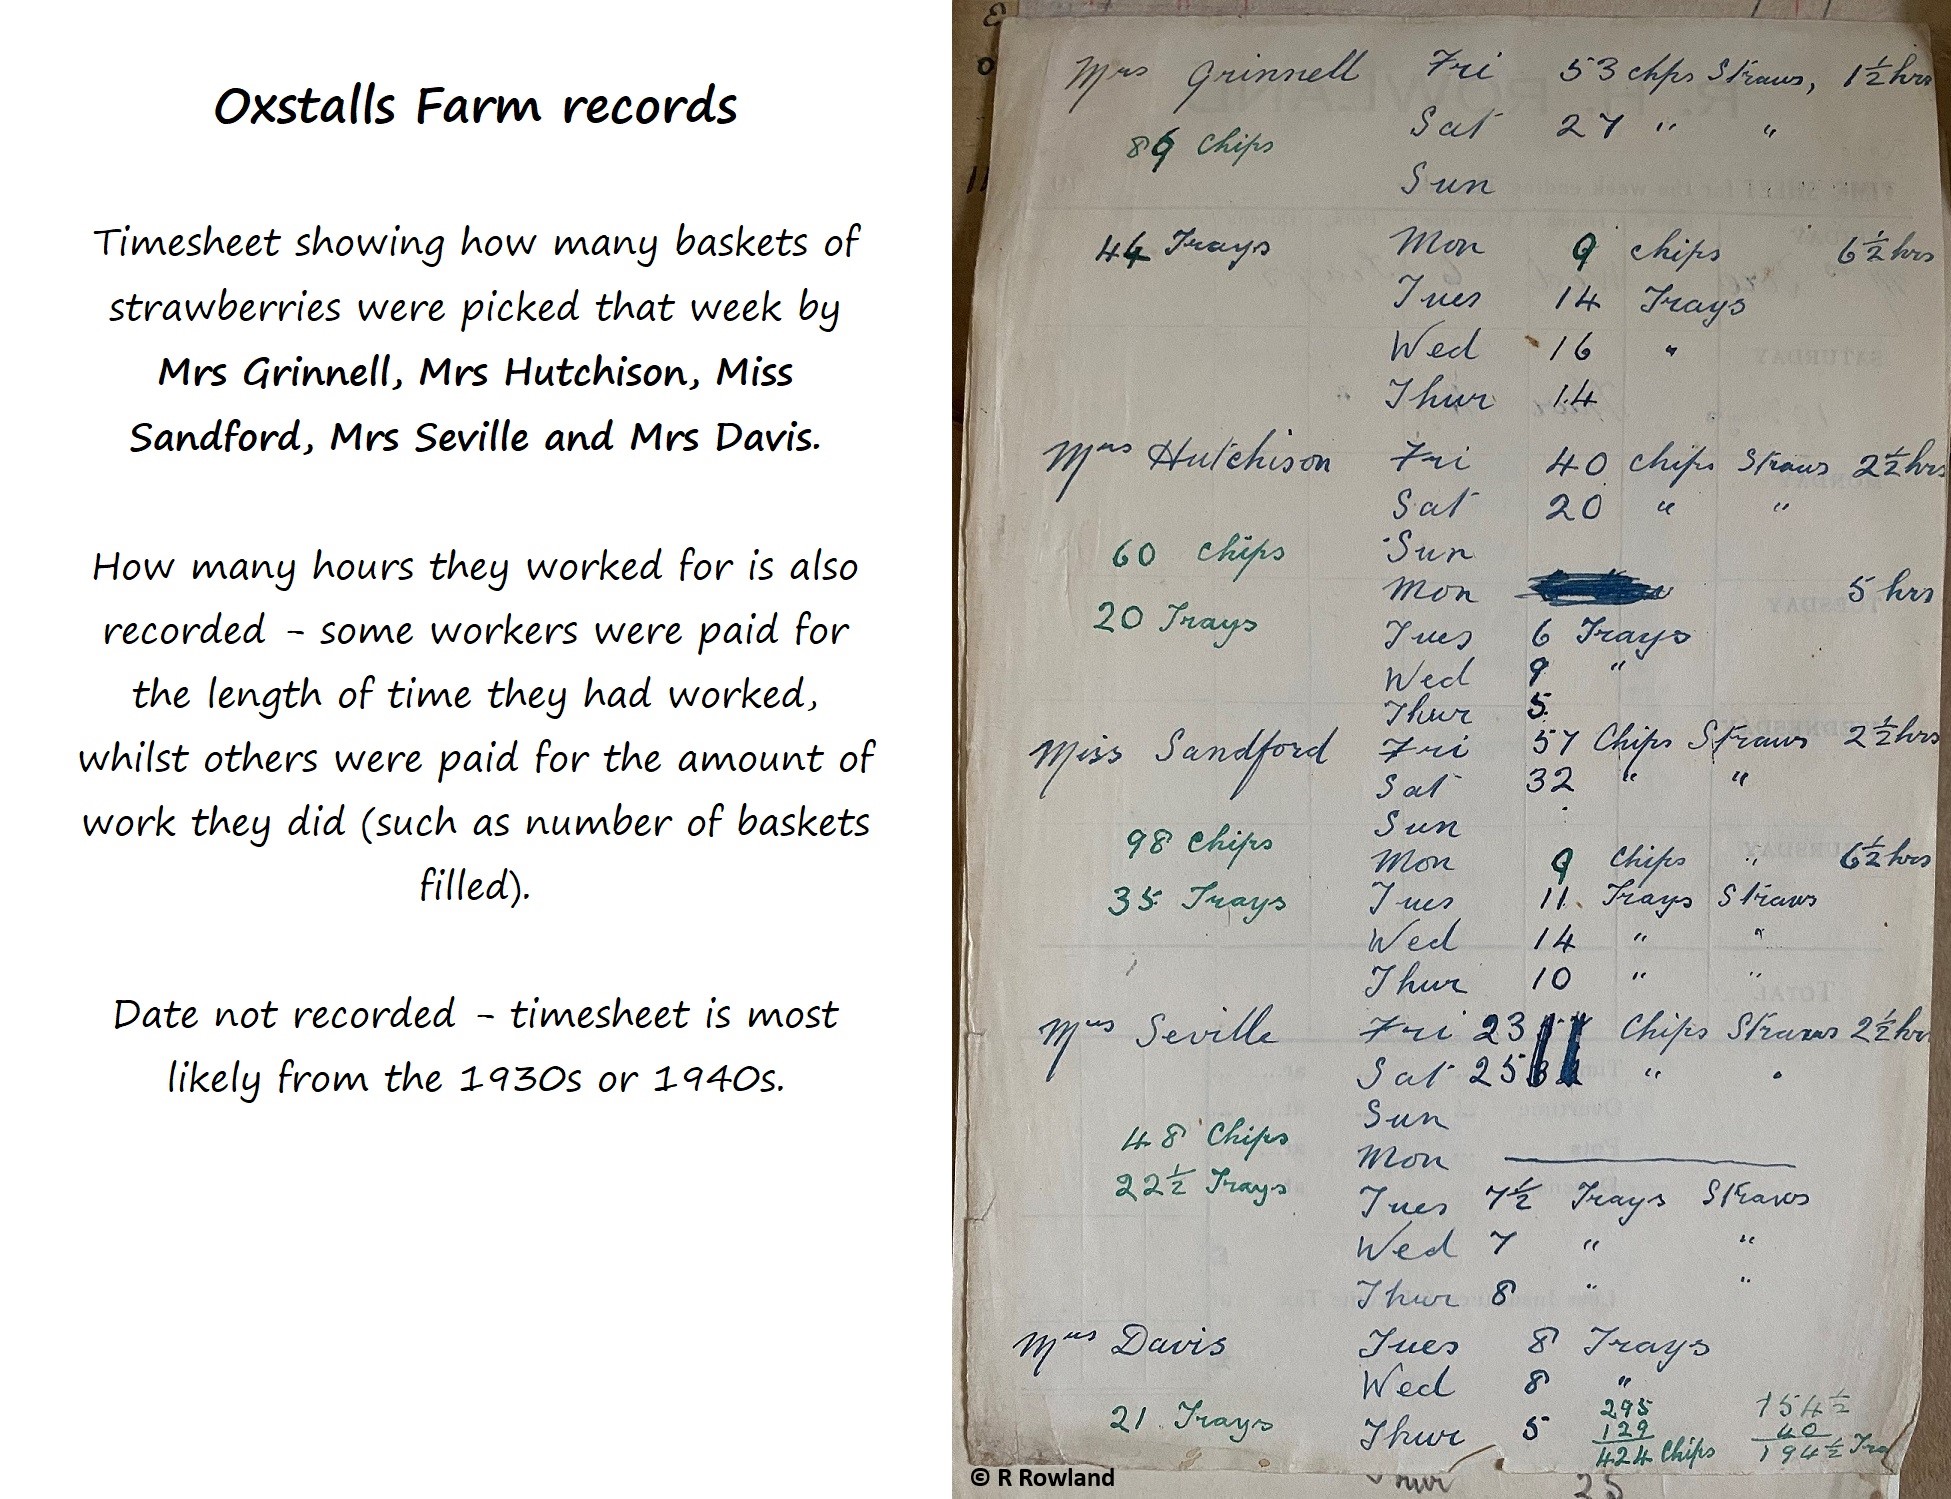 Oxstalls Farm records
Timesheet showing how many baskets of
strawberries were picked that week by
Mrs Grinnell, Mrs Hutchison, Miss
Sandford, Mrs Seville and Mrs Davis.
How many hours they worked for is also
recorded - some workers were paid for
the length of time they had worked,
whilst others were paid for the amount of
work they did (such as number of baskets
filled).
Date not recorded - timesheet is most
likely from the 1930s or 1940s.
Mrs Grinnell Fri 53 chps Straws, 1½ hrs
Sat 27 " "
Chips
Sun
44 Trays Mon 9 chips 6½ hrs
Tues 14 Trays
Wed 16 "
Thur 14
Mrs Hutchison Fri 40 chips Straws 2½ hrs
Sat 20 " "
60 chips Sun
Mon 5 hrs
20 Trays Tues 6 Trays
Wed 9 "
Thur 5
Miss Sandford Fri 57 Chips Straws 2½ hrs
Sat 32 " "
Sun
98 Chips Mon 9 Chips " 6½ hrs
35 Trays Tues 11 Trays Straws
Wed 14 " "
Thur 10 " "
Mrs Seville Fri 23 Chips Straws 2½ hr
Sat 25 " "
Sun
48 Chips Mon
22½ Trays Tues 7½ Trays Straws
Wed 7 " "
Thur 8 " "
Mrs Davis Tues 8 Trays
Wed 8 "
21 Trays Thur 5
295 154½
129 40
424 Chips 194½ Tra
© R Rowland